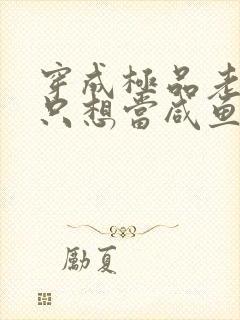 穿成極品老
只想當咸鱼
勵夏